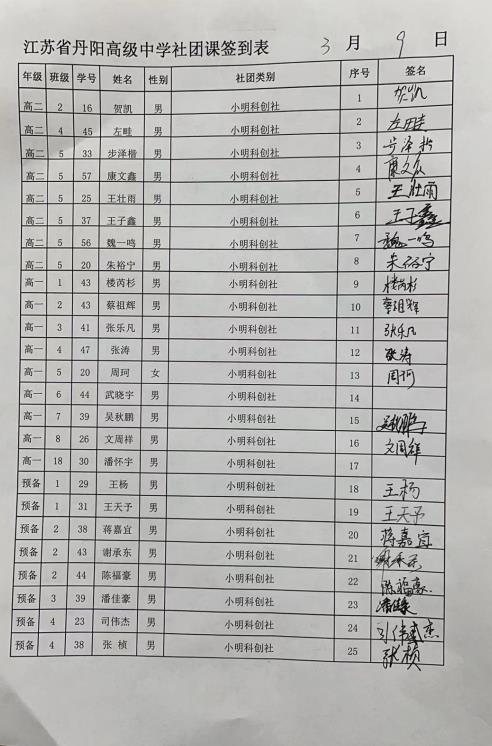 江苏省丹阳高级中学社团课签到表 3 月 9 日
年级 班级 学号 姓名 性别 社团类别 序号 签名
高二 2 16 贺凯 男 小明科创社 1 贺凯
高二 4 45 左畦 男 小明科创社 2 左畦
高二 5 33 步泽楷 男 小明科创社 3 步泽楷
高二 5 57 康文鑫 男 小明科创社 4 康文鑫
高二 5 25 王壮雨 男 小明科创社 5 王壮雨
高二 5 37 王子鑫 男 小明科创社 6 王子鑫
高二 5 56 魏一鸣 男 小明科创社 7 魏一鸣
高二 5 20 朱裕宁 男 小明科创社 8 朱裕宁
高一 1 43 楼芮杉 男 小明科创社 9 楼芮杉
高一 2 43 蔡祖辉 男 小明科创社 10 蔡祖辉
高一 3 41 张乐凡 男 小明科创社 11 张乐凡
高一 4 47 张涛 男 小明科创社 12 张涛
高一 5 20 周珂 女 小明科创社 13 周珂
高一 6 44 武晓宇 男 小明科创社 14
高一 7 39 吴秋鹏 男 小明科创社 15 吴秋鹏
高一 8 26 文周祥 男 小明科创社 16 文周祥
高一 18 30 潘怀宇 男 小明科创社 17
预备 1 29 王杨 男 小明科创社 18 王杨
预备 1 31 王天予 男 小明科创社 19 王天予
预备 2 38 蒋嘉宜 男 小明科创社 20 蒋嘉宜
预备 2 43 谢承东 男 小明科创社 21 谢承东
预备 2 44 陈福豪 男 小明科创社 22 陈福豪
预备 3 39 潘佳豪 男 小明科创社 23 潘佳豪
预备 4 23 司伟杰 男 小明科创社 24 司伟杰
预备 4 38 张 桢 男 小明科创社 25 张桢